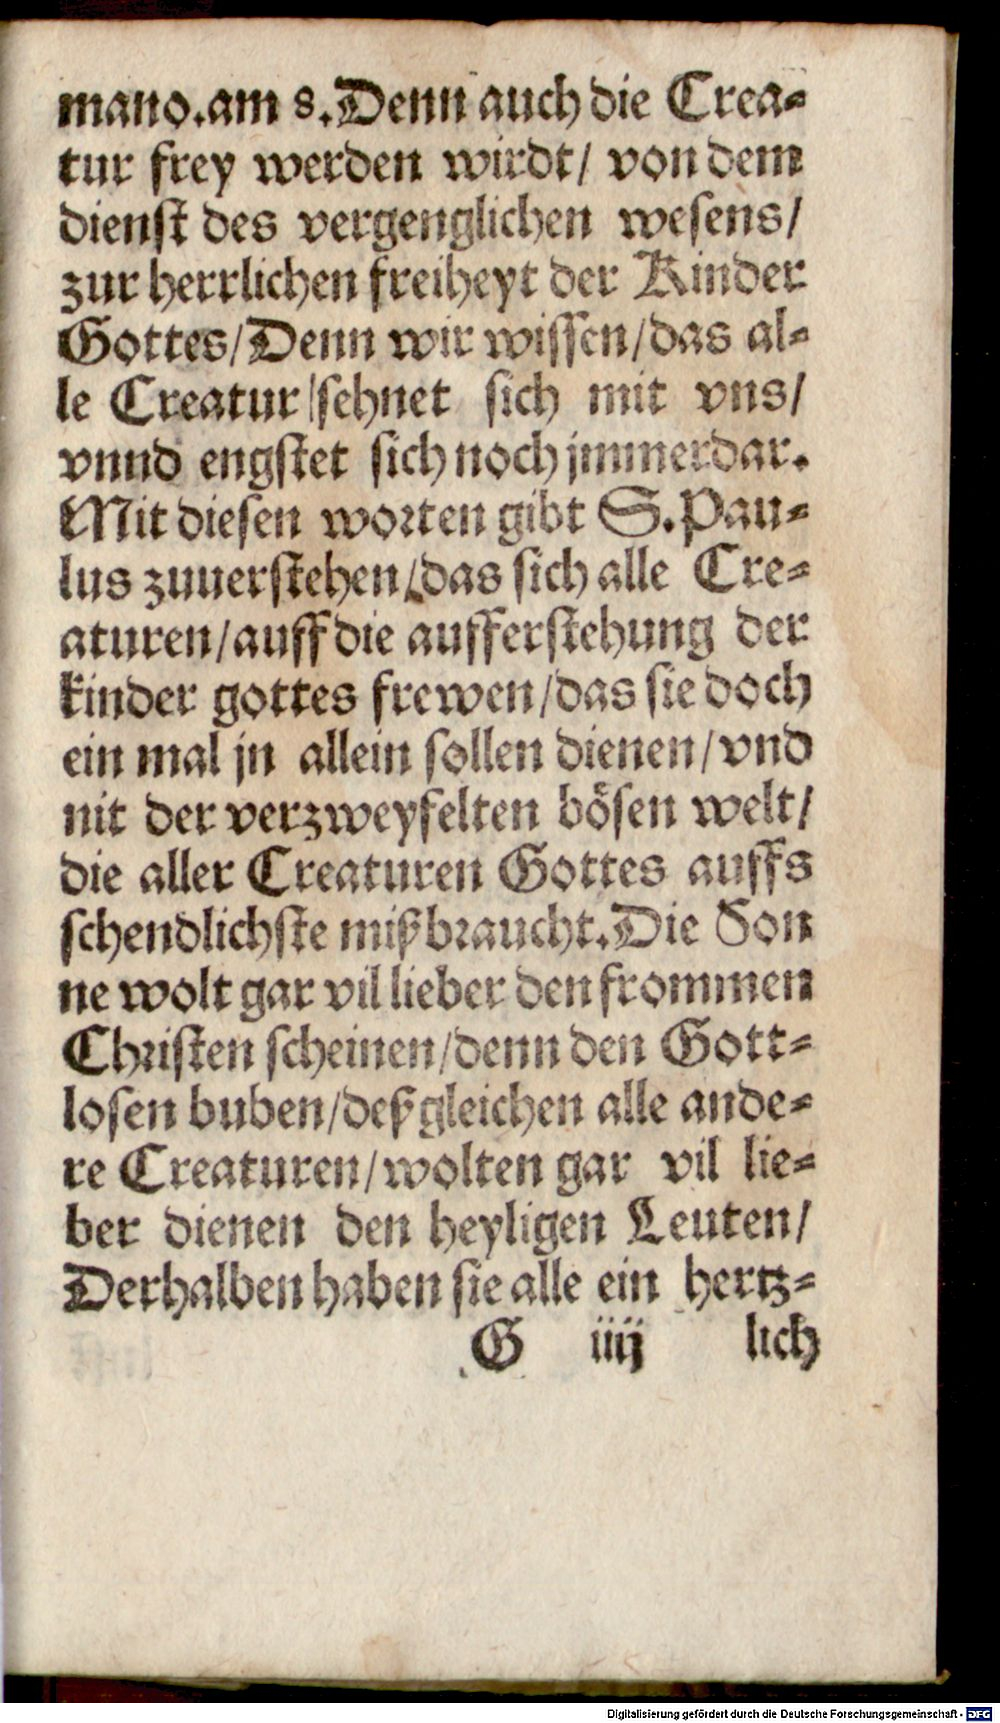 mano.am 8.Denn auch die Crea-
tur frey werden wirdt/ von dem
dienst des vergenglichen wesens/
zur herrlichen freiheyt der Kinder
Gottes/Denn wir wissen/das al-
le Creatur/sehnet sich mit vns/
vnnd engstet sich noch jmmerdar.
Mit diesen worten gibt S.Pau-
lus zuuerstehen/das sich alle Cre-
aturen/auff die aufferstehung der
kinder gottes frewen/das sie doch
ein mal jn allein sollen dienen/vnd
nit der verzweyfelten bösen welt/
die aller Creaturen Gottes auffs
schendlichste mißbraucht.Die Son
ne wolt gar vil lieber den frommen
Christen scheinen/denn den Gott-
losen buben/deßgleichen alle ande-
re Creaturen/wolten gar vil lie-
ber dienen den heyligen Leuten/
Derhalben haben sie alle ein hertz-
G iiij lich
Digitalisierung gefördert durch die Deutsche Forschungsgemeinschaft - DFG